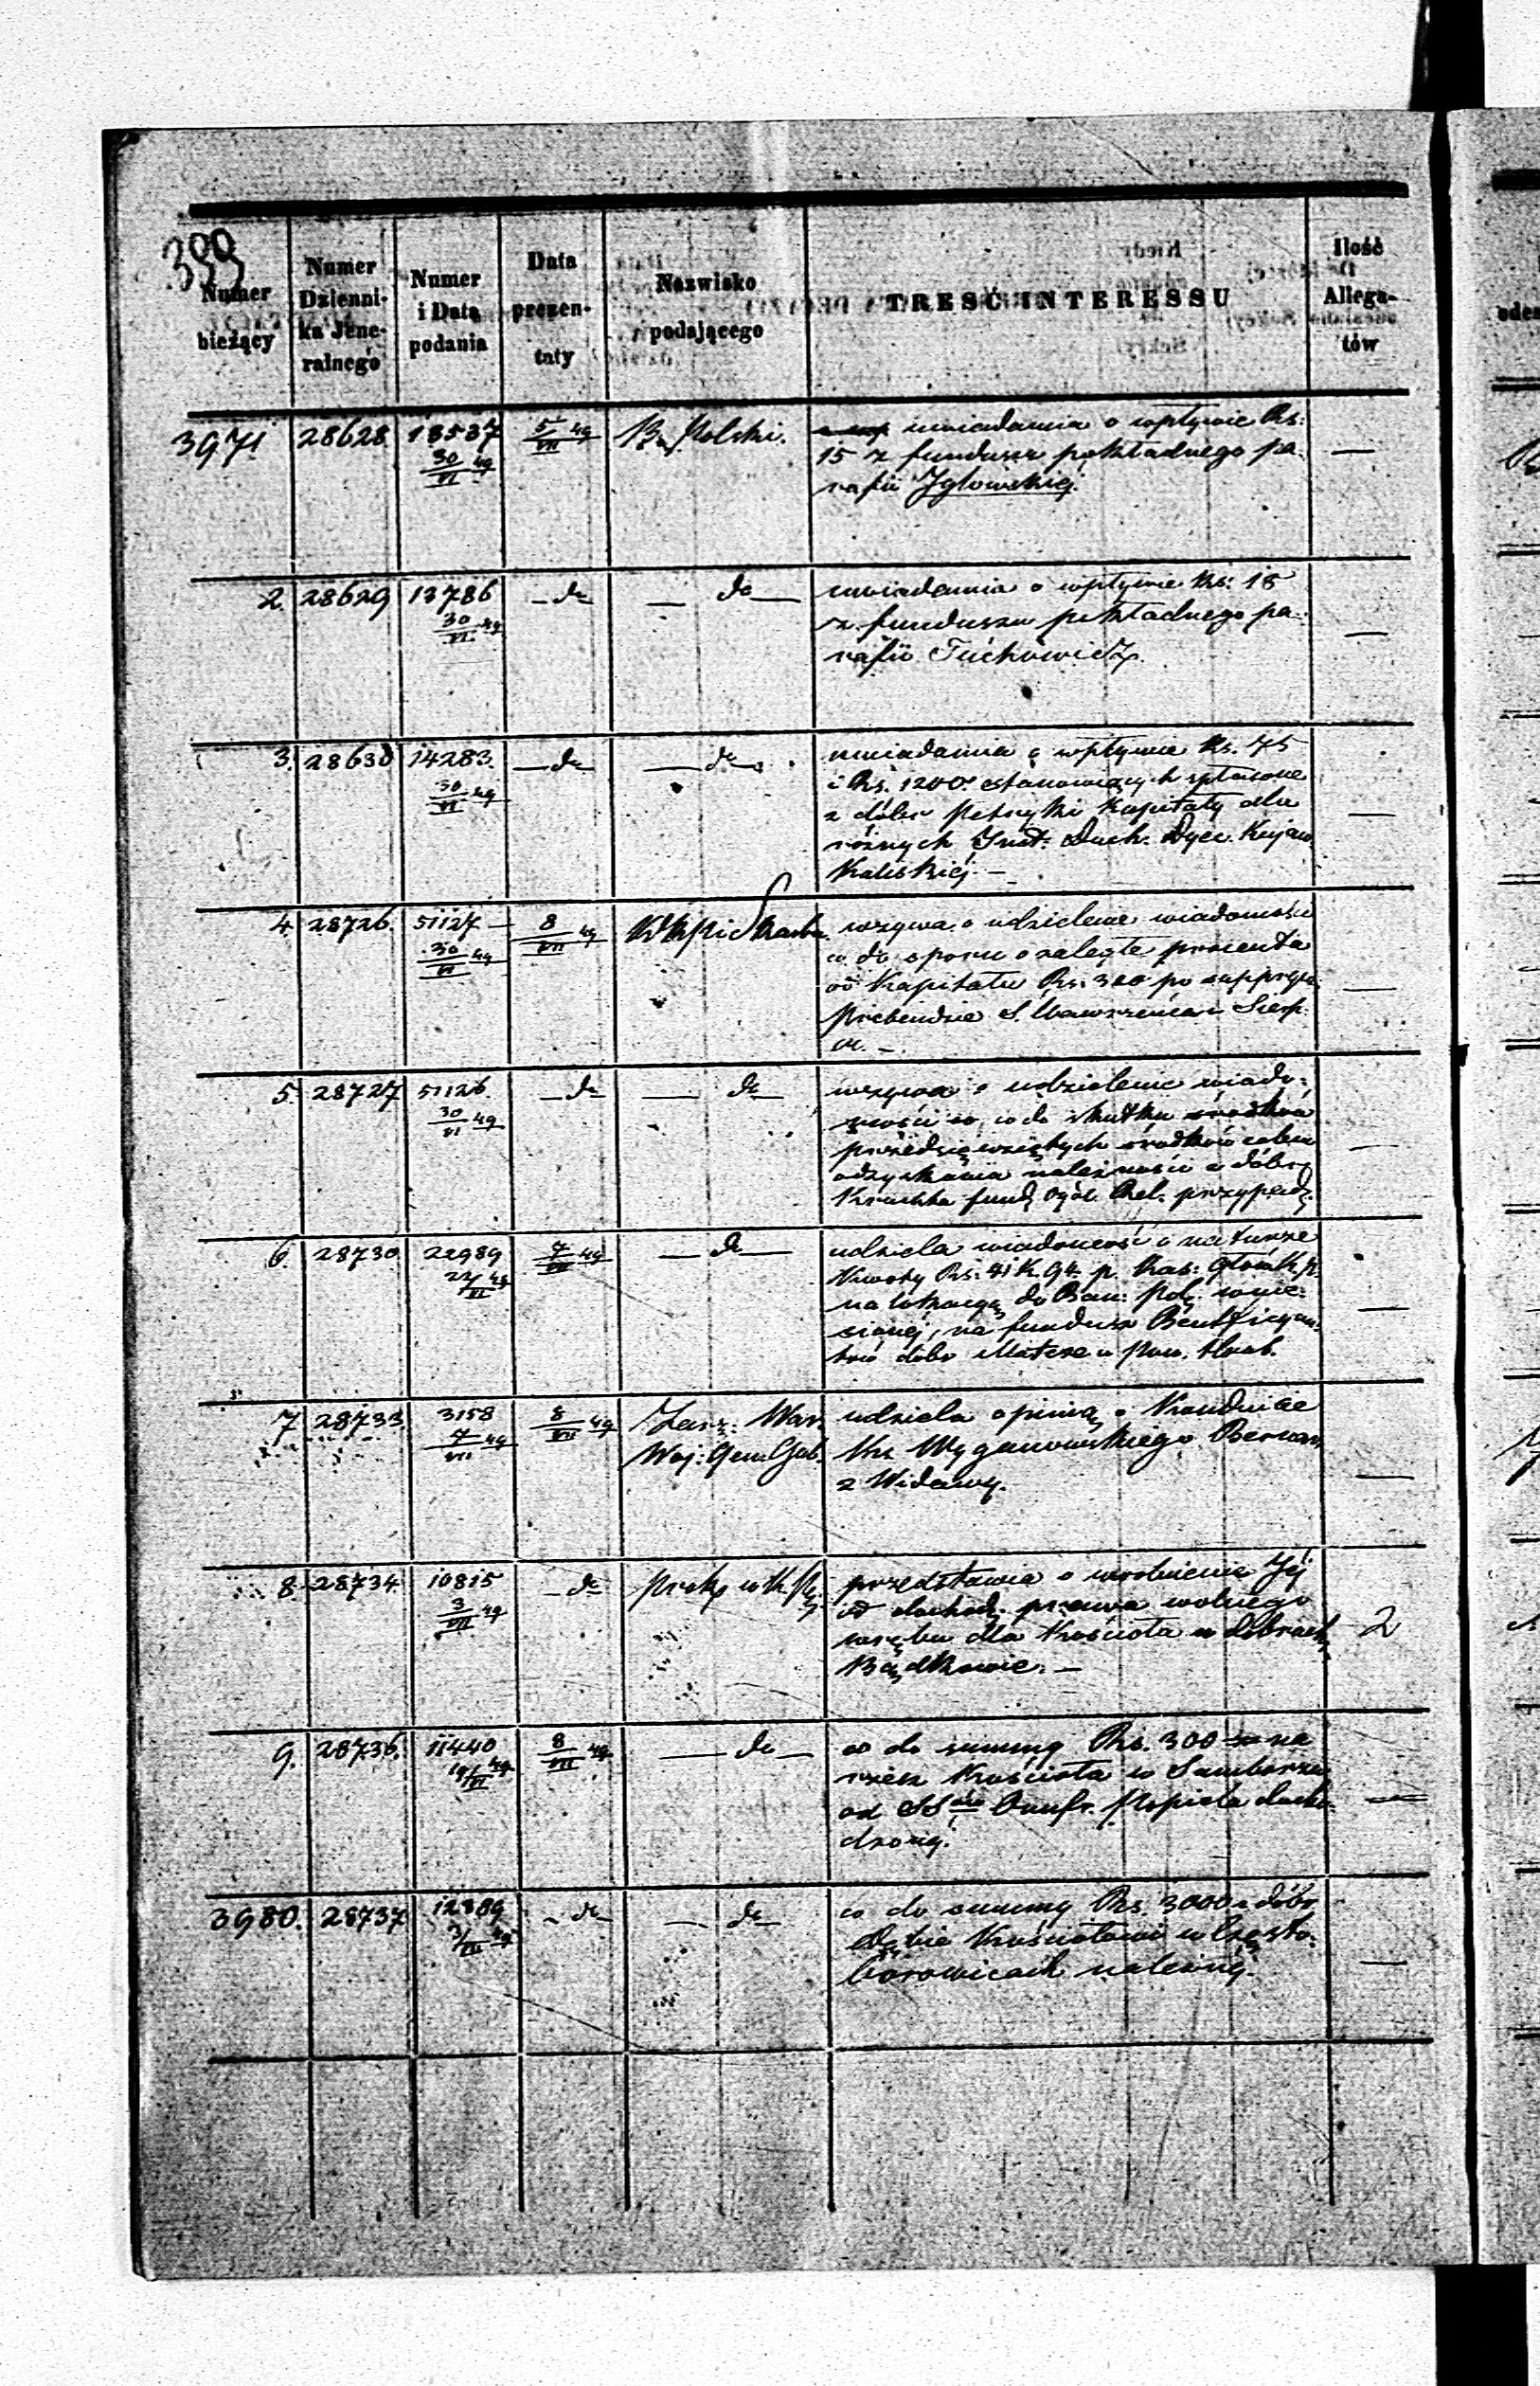 399
Numer bieżący
Numer Dzienni-ka Jene-ralnego
Numer i Data podania
Data prezen-taty
Nazwisko podającego
TREŚĆ INTERESSU
Ilość Allega-tów
3971. 28628 13537 30/VI 49 5/VII 49 B. Polski. uwiadamia o wpływie Rs:
15 z fundusz pokładnego pa-
rafii Jgłowskiej. —
2. 28629 13786 30/VI 49 — do — do — uwiadamia o wpływie Rs: 18
z funduszu pokładnego pa-
rafii Tuchowicz. —
3. 28630 14283. 30/VI 49 — do — do uwiadamia o wpływie Rs. 75
i Rs. 1200. stanowiących spłacone
z dóbr Petryki Kapitały dla
różnych Inst: Duch. Dyec. Kujaw
Kaliskiej. — —
4. 28726. 51127 — 30/VI 49 8/VII 49 wzywa o udzielenie wiadomości
co do sporu o zaległe procenta
od Kapitału Rs. 300 po
Prebendzie S. Wawrzeńca w Sierp
cu. — —
5. 28727 51126. 30/VI 49 — do — do — wzywa o udzielenie wiado-
mości co do skutku środków
przedsięwziętych środków celem
odzyskania należności z dóbr
fund Ogól. Rel. —
6. 28730. 22989 7/VII 49 — do — udziela wiadomość o naturze
Kwoty Rs: 41 K. 94 p. Kas: Głów. K. P.
na lokacyą do Ban: Pol: wnie-
sionej, na fundusz Beneficyan-
tów dóbr Matcze w Pow. Hrub. —
7 28733 3158 7/VII 49 8/VII 49 Zarz: War. udziela opinią o Kondui­cie
Woj: Gen. Gub. Kx Wyganowskiego Bernar.
z Widawy. —
8. 28734 10815 3/VII 49 — do Prok. w K. P. przedstawia o uwolnienie Jéj
od dochodz. prawa wolnego
wrębu dla Kościoła w dobrach 2
Bądkowie. —
9. 28736. 11440 8/VII 49 — do — co do summy Rs. 300 na
rzecz Kościoła w Samborzu
od SSów Onufr. docho-
dzonej. —
3980. 28737 12389 — do — do — co do summy Rs. 3000 z dóbr
Dębie Kościołowi w Często-
borowicach należnej. —